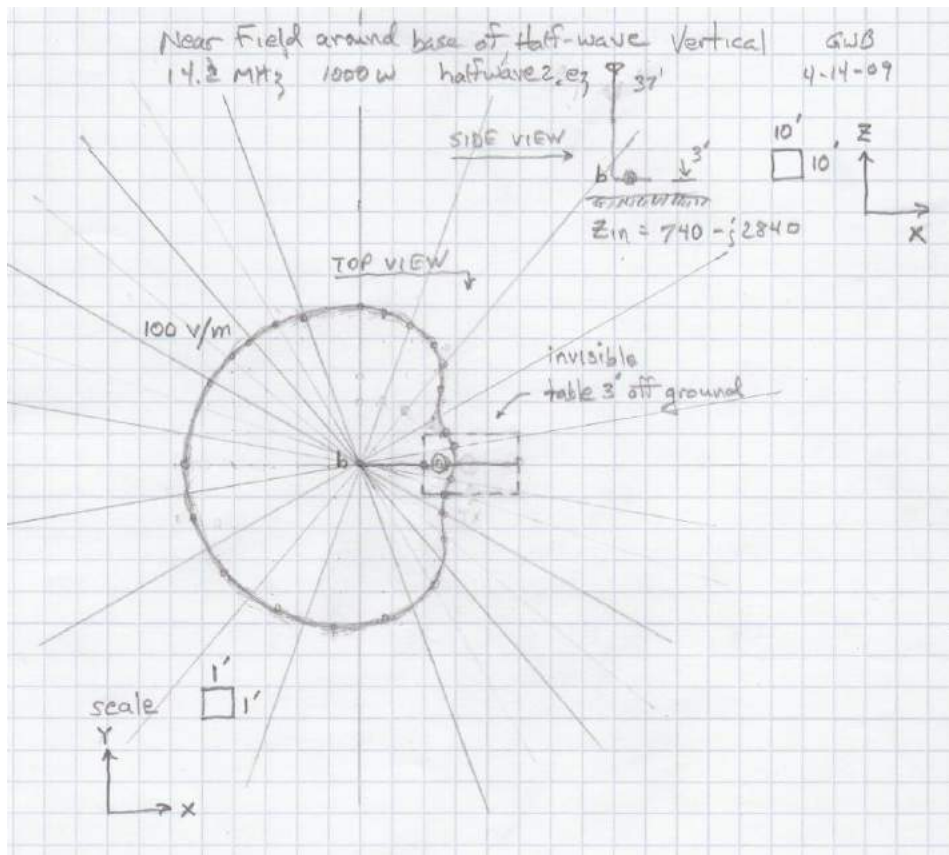 Near Field around base of Half-wave Vertical GWB
14.2 MHz 1000 W halfwave2.ez 4-14-09
37'
SIDE VIEW
b
3'
10'
10'
Z
X
Zin = 740 - j2840
TOP VIEW
100 V/m
invisible
table 3' off ground
b
1'
1'
scale
Y
X